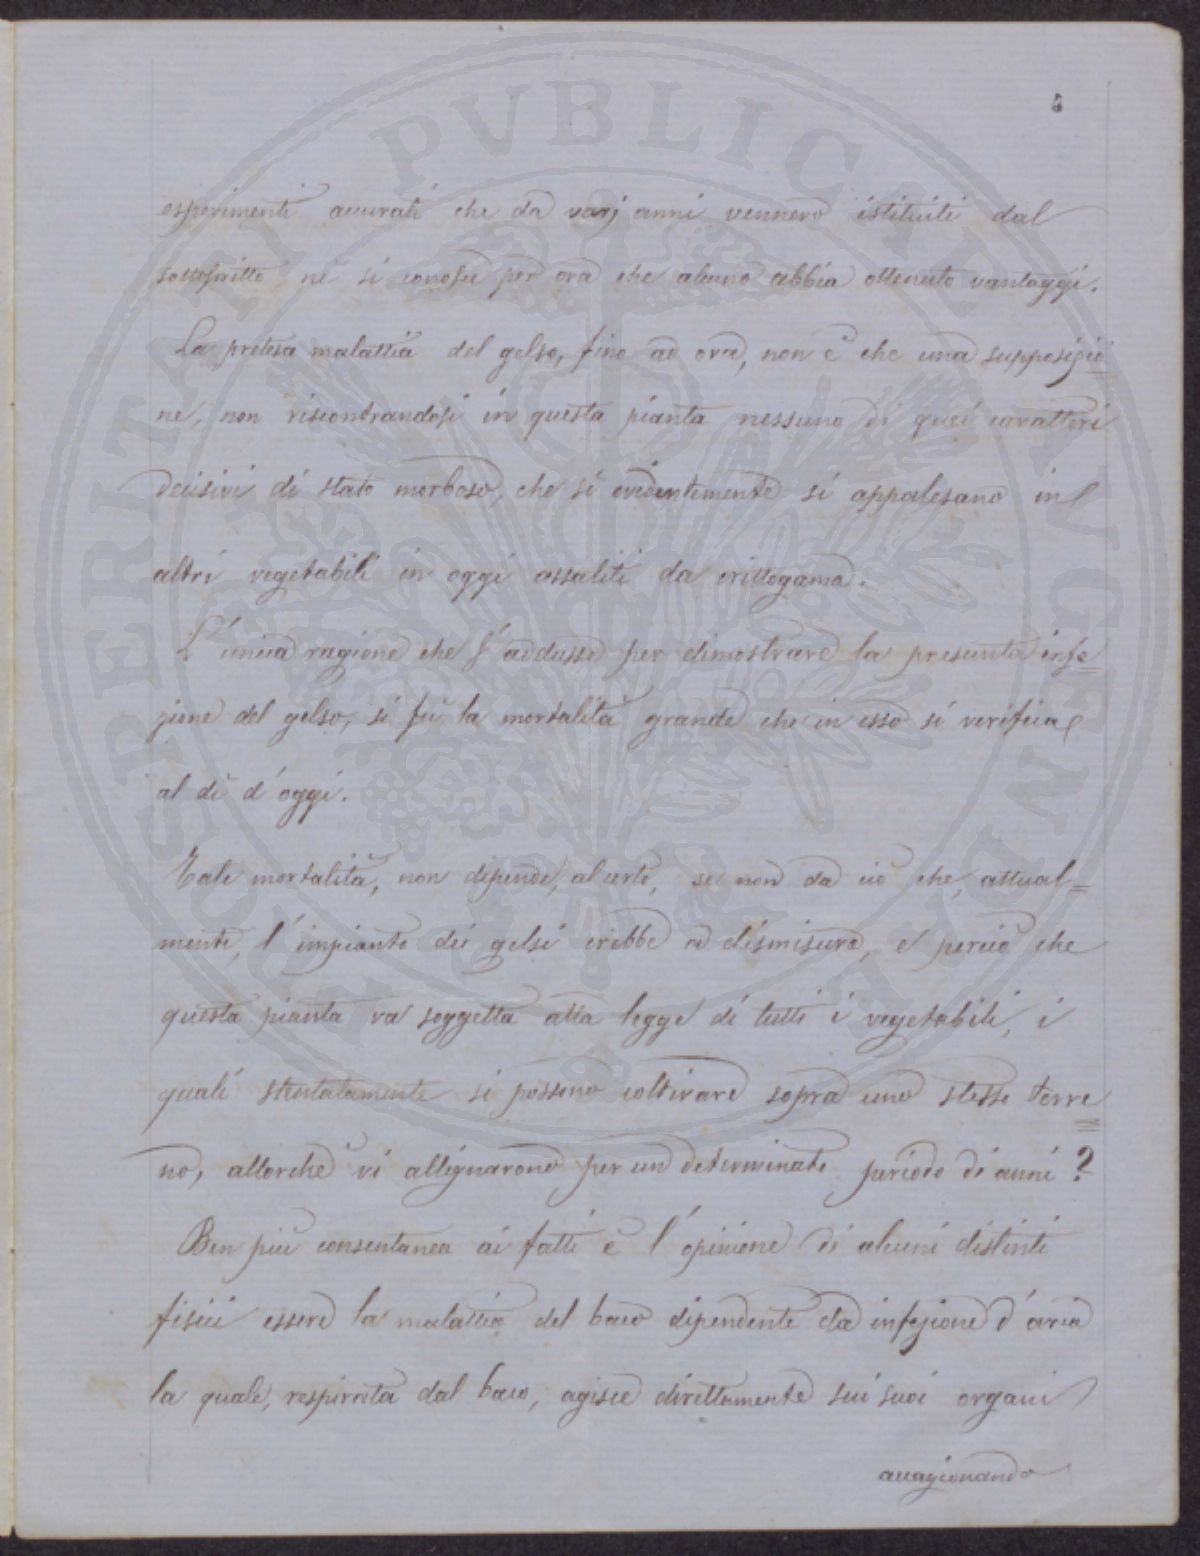 5
esperimenti accurati che da varj anni vennero istituiti dal
sottoscritto nè si conosce per ora che alcuno abbia ottenuto vantaggi.
La pretesa malattia del gelso, fino ad ora, non è che una supposizio=
ne, non riscontrandosi in questa pianta nessuno di quei caratteri
decisivi di stato morboso, che sì evidentemente si appalesano in
altri vegetabili in oggi assaliti da crittogama.
L'unica ragione che s'addusse per dimostrare la presunta infe=
zione del gelso, si fu la mortalità grande che in esso si verifica
al dì d'oggi.
Tale mortalità, non dipende, al certo, se non da ciò che, attual=
mente, l'impianto dei gelsi crebbe a dismisura, e perciò che
questa pianta va soggetta alla legge di tutti i vegetabili, i
quali stentatamente si possono coltivare sopra uno stesso terre=
no, allorchè vi allignarono per un determinato periodo di anni?
Ben più consentanea ai fatti è l'opinione di alcuni distinti
fisici essere la malattia del baco dipendente da infezione d'aria
la quale, respirata dal baco, agisce direttamente sui suoi organi
accagionando
PROSPERITATI PVBLICAE AVGENDAE